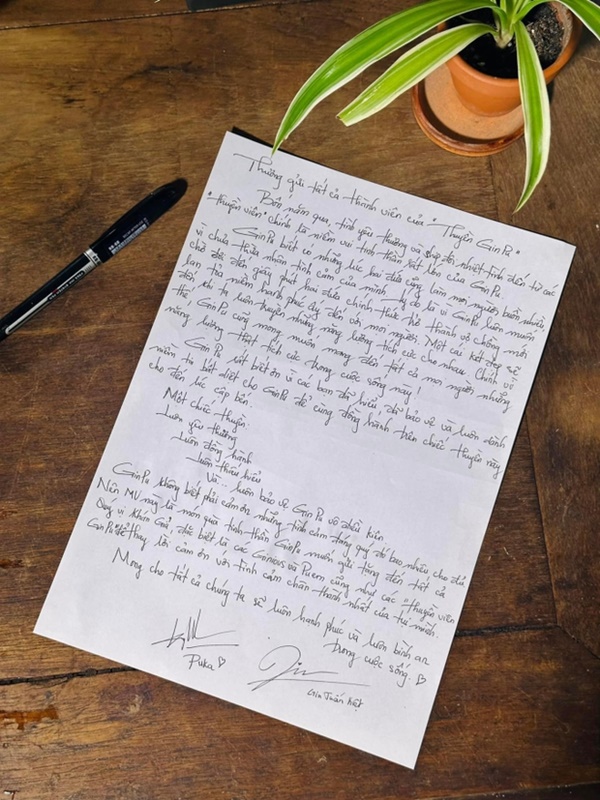 Thương gửi tất cả thành viên của "Thuyền GinPu"
Bốn năm qua, tình yêu thương và sự đón nhiệt tình đến từ các
"thuyền viên" chính là niềm vui tinh thần rất lớn của GinPu.
GinPu biết có những lúc hai đứa cũng làm mọi người buồn nhiều
vì chưa thừa nhận tình cảm của mình. Lý do là vì GinPu luôn muốn
chờ đợi đến giây phút hai đứa chính thức trở thành vợ chồng mới
lan tỏa niềm hạnh phúc ấy đến với mọi người. Một cái kết đẹp sẽ
đợi khi ta luôn truyền những năng lượng tích cực cho nhau. Chính vì
thế, GinPu cũng mong muốn mang đến tất cả mọi người những
năng lượng thật tích cực trong cuộc sống này!
GinPu rất biết ơn vì các bạn đã hiểu, đã bảo vệ và luôn dành
niềm tin bất diệt cho GinPu để cùng đồng hành trên chiếc thuyền này
cho đến lúc cập bến.
Một chiếc thuyền:
Luôn yêu thương
Luôn đồng hành
Luôn thấu hiểu
Và... luôn bảo vệ GinPu vô điều kiện
GinPu không biết phải cảm ơn những tình cảm đáng quý đó bao nhiêu cho đủ
Nên MV này là món quà tinh thần GinPu muốn gửi tặng đến tất cả
Quý vị khán Giả, đặc biệt là các Genious và Puem cũng như các thuyền viên
GinPu để thay lời cảm ơn với tình cảm chân thành nhất của tụi mình.
Mong cho tất cả chúng ta sẽ luôn hạnh phúc và luôn bình an
trong cuộc sống. ♡
Puka ♡
Gin Tuấn Kiệt